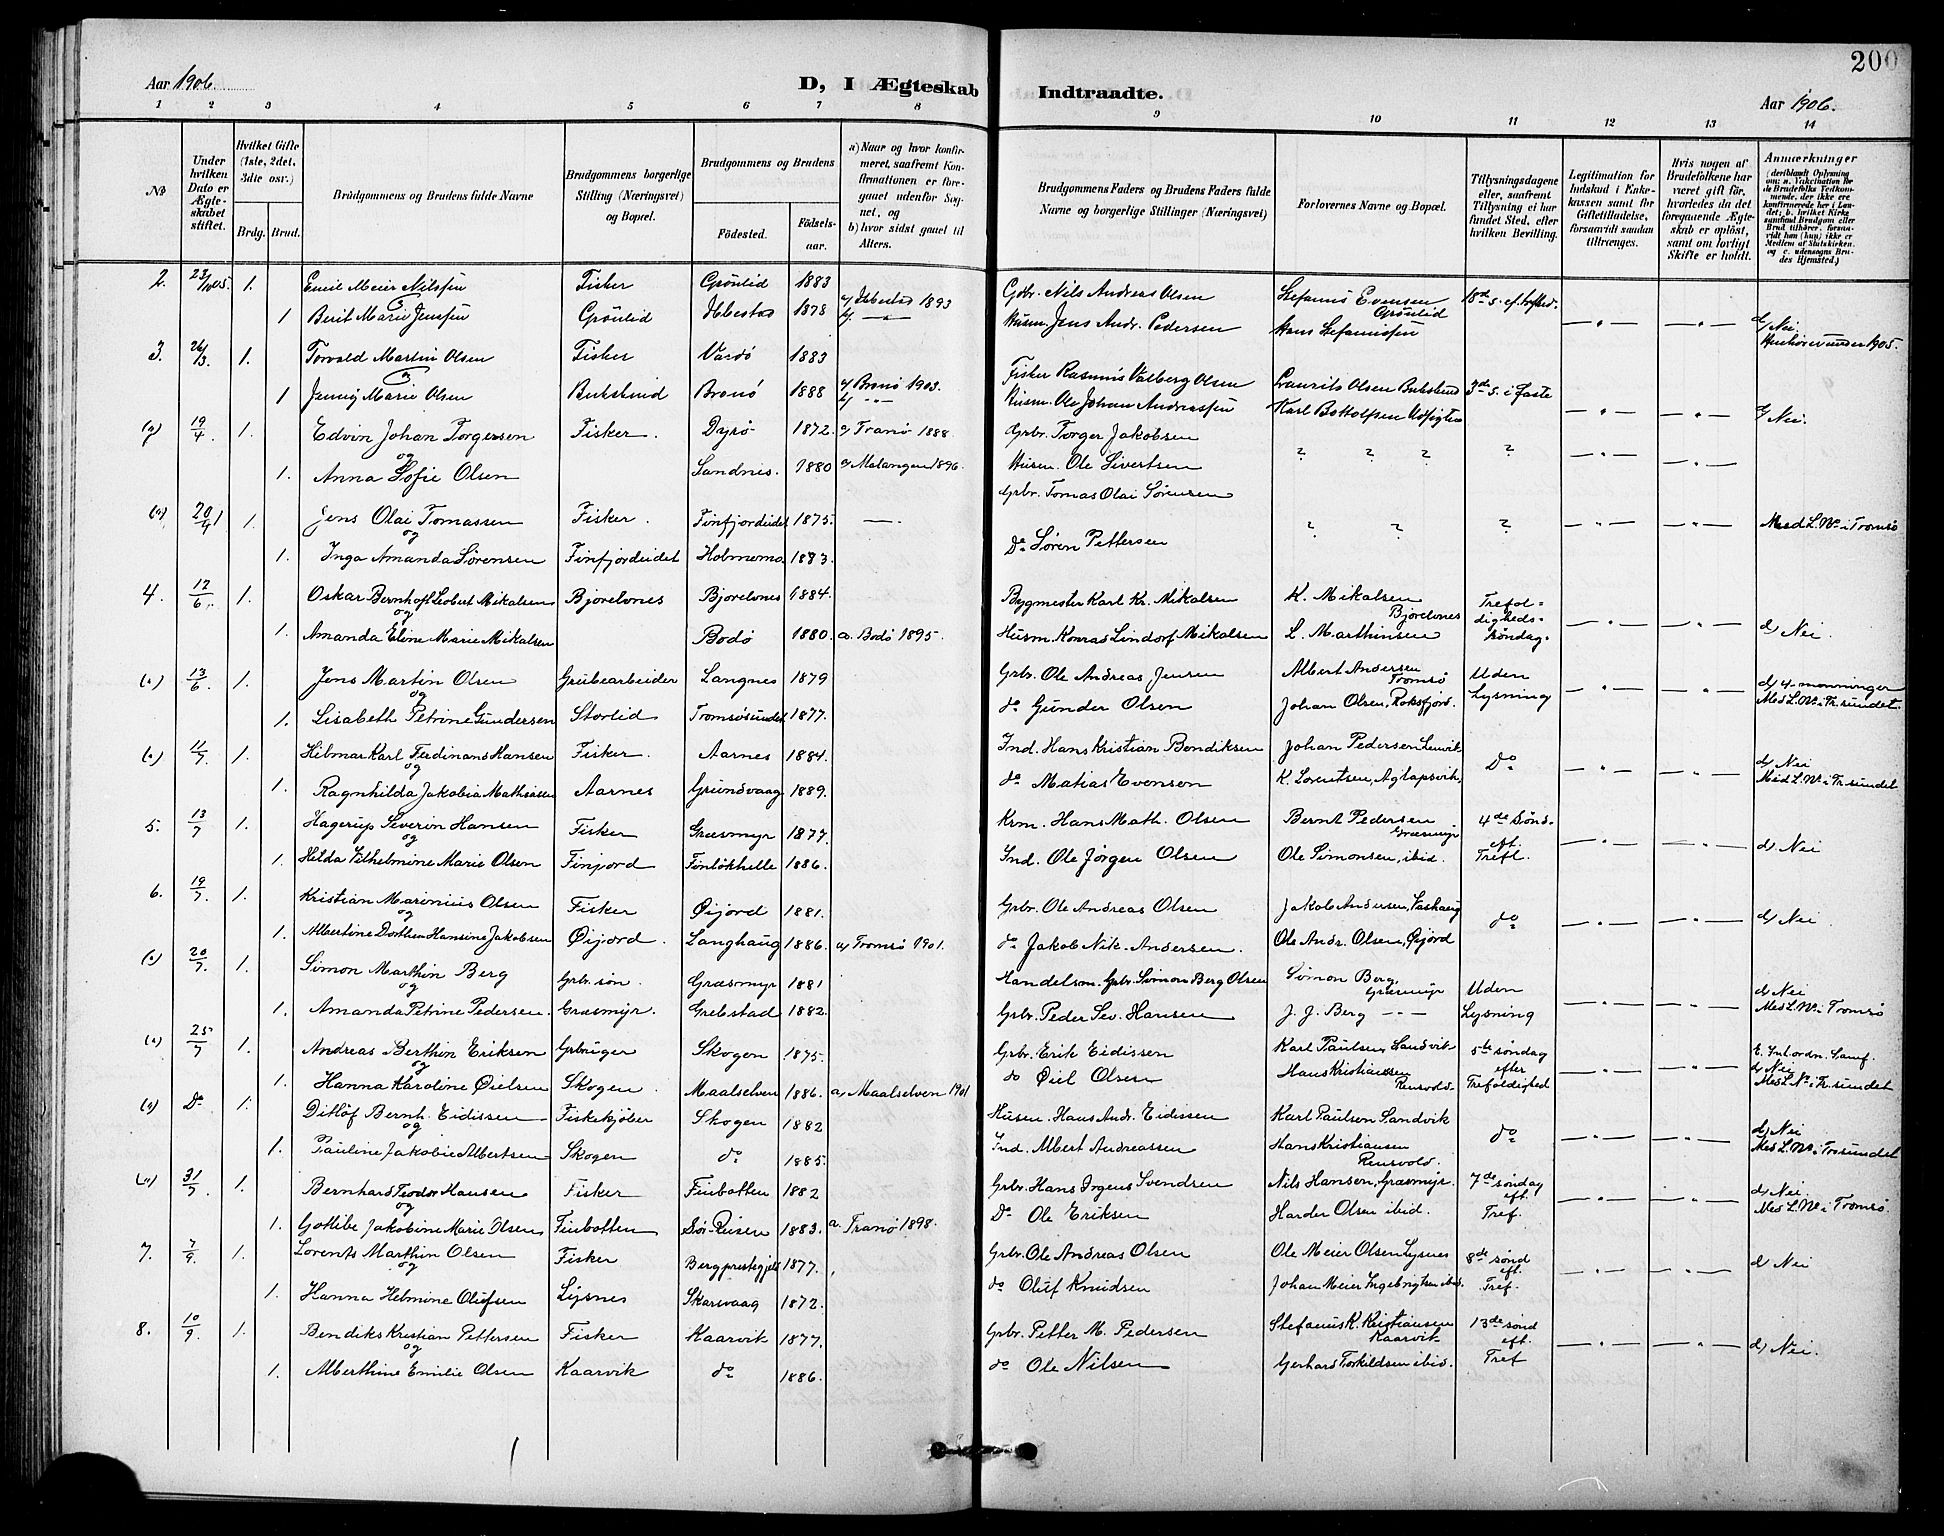 200
Aar 1906.
D, I Ægteskab
Indtraadte.
Aar 1906.
1 2 3 4 5 6 7 8
9 10 11 12 13 14
No
Under hvilken Dato er Ægteskabet stiftet.
Hvilket Gifte (1ste, 2det, 3die osv.)
Brdg. Brud.
Brudgommens og Brudens fulde Navne
Brudgommens borgerlige Stilling (Næringsvei) og Bopæl.
Brudgommens og Brudens
Fødested. Fødselsaar.
a) Naar og hvor konfirmeret, saafremt Konfirmationen er foregaaet udenfor Sognet, og
b) hvor sidst gaaet til Alters.
Brudgommens Faders og Brudens Faders fulde Navne og borgerlige Stillinger (Næringsvei)
Forlovernes Navne og Bopæl.
Tillysningsdagene eller, saafremt Tillysning ei har fundet Sted, efter hvilken Bevilling.
Legitimation for Indskud i Enkekassen samt for Giftetilladelse, forsaavidt saadan tiltrænges.
Hvis nogen af Brudefolkene har været gift før, hvorledes da det foregaaende Ægteskab er opløst, samt om lovligt Skifte er holdt.
Anmærkninger
2. 23/10 05. 1. Emil Meier Nilsen Fisker Grönlid 1883 Gbr. Nils Andreas Olsen Stefanus Evensen Grönlid 18de s. ef. trefold.
1 Berit Marie Jensen Grönlid Ibestad 1878 a) Ibestad 1893 Husm. Jens Andr. Pedersen Hans Stefanussen d) Nei
3. 26/3. 1. Torvald Martin Olsen Fisker Vardö 1883 Fisker Rasmus Valberg Olsen Laurits Olsen Bukskind 3de s. i faste
1 Jenny Marie Olsen Bukskind Bronö 1888 a) Bronö 1903. Husm. Ole Johan Andreassen Karl Bottolfsen d) Nei.
19/4 1. Edvin Johan Torgersen Fisker. Dyrö 1872. a) Tranö 1888. Grbr. Torger Jakobsen ? ? ? ?
og
1. Anna Sofie Olsen Sandnes. 1880 a) Malangen 1896. Husm. Ole Sivertsen
20/4 1. Jens Olai Tomassen Fisker. Finfjordeidet 1875. Grbr. Tomas Olai Sörensen ? ? ? Med L. No i Tromsö
og
1. Inga Amanda Sørensen Finfjordeidet 1883. Do Søren Pettersen
4. 12/6. 1. Oskar Bernhoft Leobert Mikalsen Bjorelvnes Bjorelvnes 1884. Bygmester Karl Kr. Mikalsen K. Mikalsen Bjorelvnes Trefoldigheds-
og
1. Amanda Eline Marie Mikalsen Bodö 1880. a. Bodö 1895. Husm. Konrad Lindorf Mikalsen L. Marthinsen söndag. d) Nei.
13/6. 1. Jens Martin Olsen Grubearbeider Langnes 1879 Grbr. Ole Andreas Jensen Albert Andersen Tromsö Uden
og
1. Lisabeth Petrine Gundersen Storlid Tromsösundet 1877. do Gunder Olsen Johan Olsen, Roksfjord. Lysning d) 4-menninger Med L. No i Tr.sundet.
11/7 1. Hilmar Karl Ferdinand Hansen Fisker. Aarnes 1884. Ind. Hans Kristian Bendiksen Johan Pedersen Lenvik Do d) Nei
og
1. Ragnhilda Jakobia Mathisen Aarnes Grundvaag 1889. do Matias Evensen K. Lorentsen, Aglapsvik, Med L. No i Tr.sundet
5. 13/7 1. Hagerup Severin Hansen Fisker Græsmyr 1877. Krm. Hans Math. Olsen Bernt Pedersen Græsmyr 4de Sönd.
og
1. Hilda Vilhelmine Marie Olsen Finjord 1886. Ind. Ole Jörgen Olsen Ole Simonsen, ibid. eft. Trefl. d) Nei
6. 19/7. 1. Kristian Marinius Olsen Fisker Øijord 1881. Grbr. Ole Andreas Olsen Jakob Andersen, do d) Nei
og
1. Albertine Dorthea Hansine Jakobsen Øijord. Langhaug 1886. a) Tromsö 1901. do Jakob Nik. Andersen. Ole Andr. Olsen, Øijord
20/7. 1. Simon Marthin Berg Grbr. sön. Græsmyr 1881 Handelsm. Grbr. Simon Berg Olsen Simon Berg Græsmyr Uden d) Nei
og
1. Amanda Petrine Pedersen. Græsmyr. Grebstad 1882. Grbr. Peder Sev. Hansen J. J. Berg Lysning Med L. No i Tromsö
25/7 1. Andreas Berthin Eriksen Grbruger Skogen 1875. Grbr. Erik Eidissen Karl Paulsen Sandvik 5te söndag
og
1. Hanna Karoline Øielsen Skogen. Maalselven 1886. a) Maalselven 1901 do Øiel Olsen Hans Kristiansen Rensvold. efter Trefoldighed d) Nei Med L. No i Tr.sundet
Do 1. Ditlöf Bernh. Eidissen Fiskekjöber Skogen 1882 Husm. Hans Andr. Eidissen Karl Paulsen Sandvik do
og
1. Pauline Jakobie Albertsen Skogen do 1885. Ind. Albert Andreassen Hans Kristiansen Rensvold. d) Nei Med L. No i Tr.sundet
31/7 1. Bernhard Teodor Hansen Fisker Finbotten 1882 Grbr. Hans Irgens Svendsen Nils Hansen, Græsmyr. 7de söndag d) Nei.
og
1. Gotlibe Jakobine Marie Olsen Finbotten Sör-Reisen 1883. a. Tranö 1898. Do Ole Eriksen Harder Olsen ibid. eft. Tref. Med L. No i Tromsö.
7. 7/9. 1. Lorents Marthin Olsen Fisker Berg prestegjeld 1877. Grbr. Ole Andreas Olsen Ole Meier Olsen Lysnes 8de sönd
og
1. Hanna Helmine Olufsen Lysnes Skarsvaag 1872. do Oluf Knudsen Johan Meier Ingebrigtsen ibid. eft. Tref. d) Nei
8. 10/9. 1. Bendiks Kristian Pettersen Fisker Kaarvik 1877. Grbr. Petter M. Pedersen Stefanus K. Kristiansen Kaarvik 13de sönd
og
1. Alberthine Emilie Olsen Kaarvik do 1886. do Ole Nilsen Gerhard Torkildsen ibid. eft. Tref d) Nei.